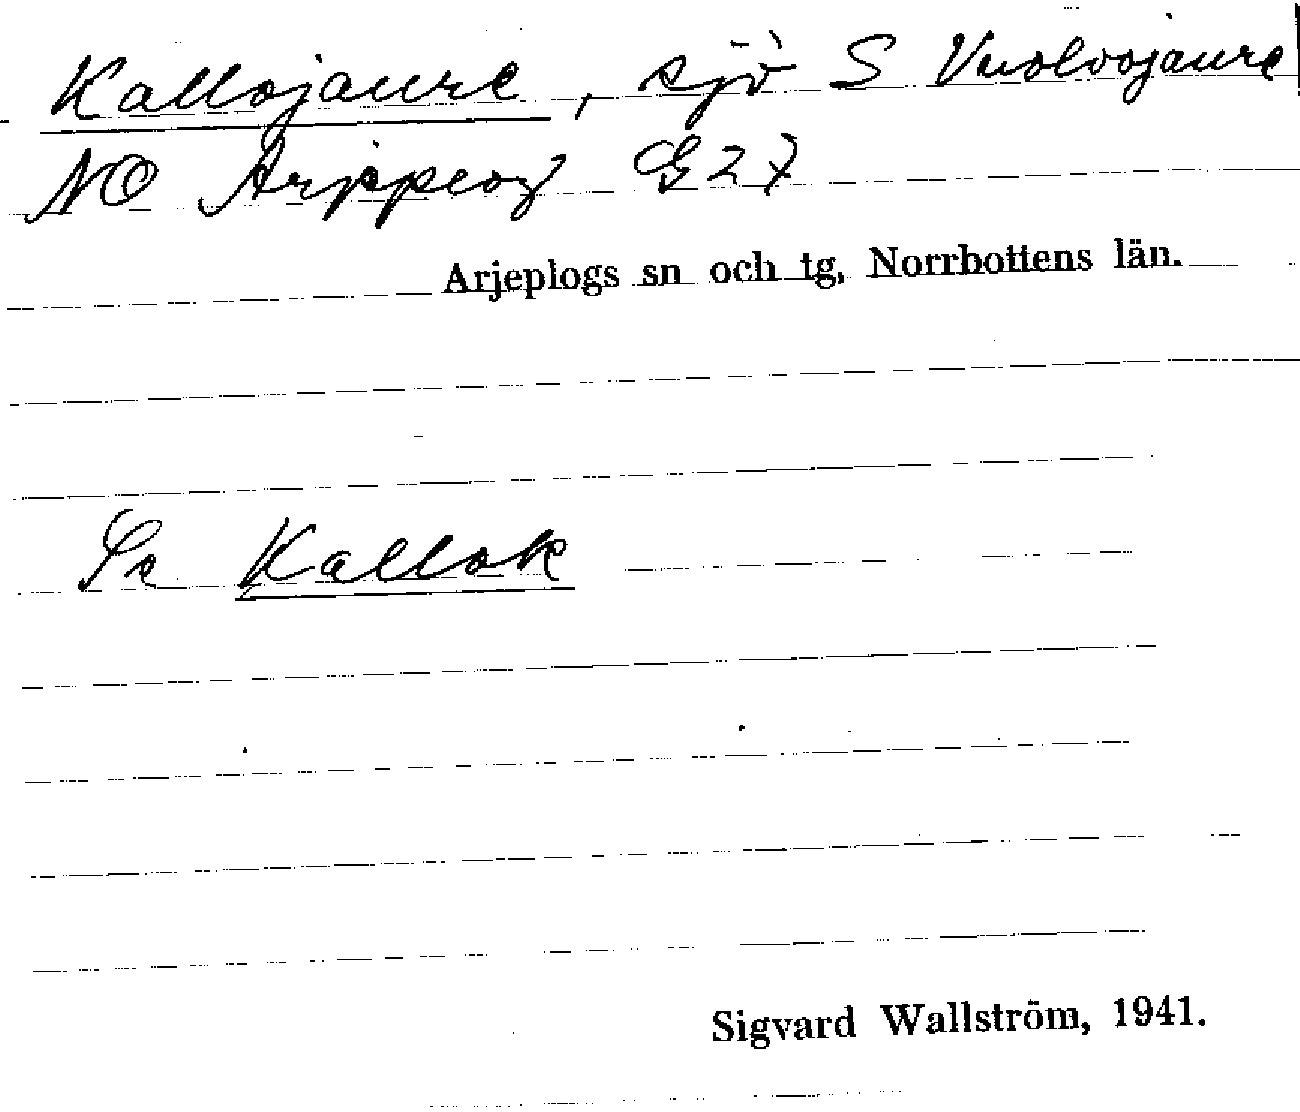 Kallojaure, sjö S Vuolvojaure
NO Arjepeog G27
Arjeplogs sn och tg, Norrbottens län.
Se Kallok
Sigvard Wallström, 1941.